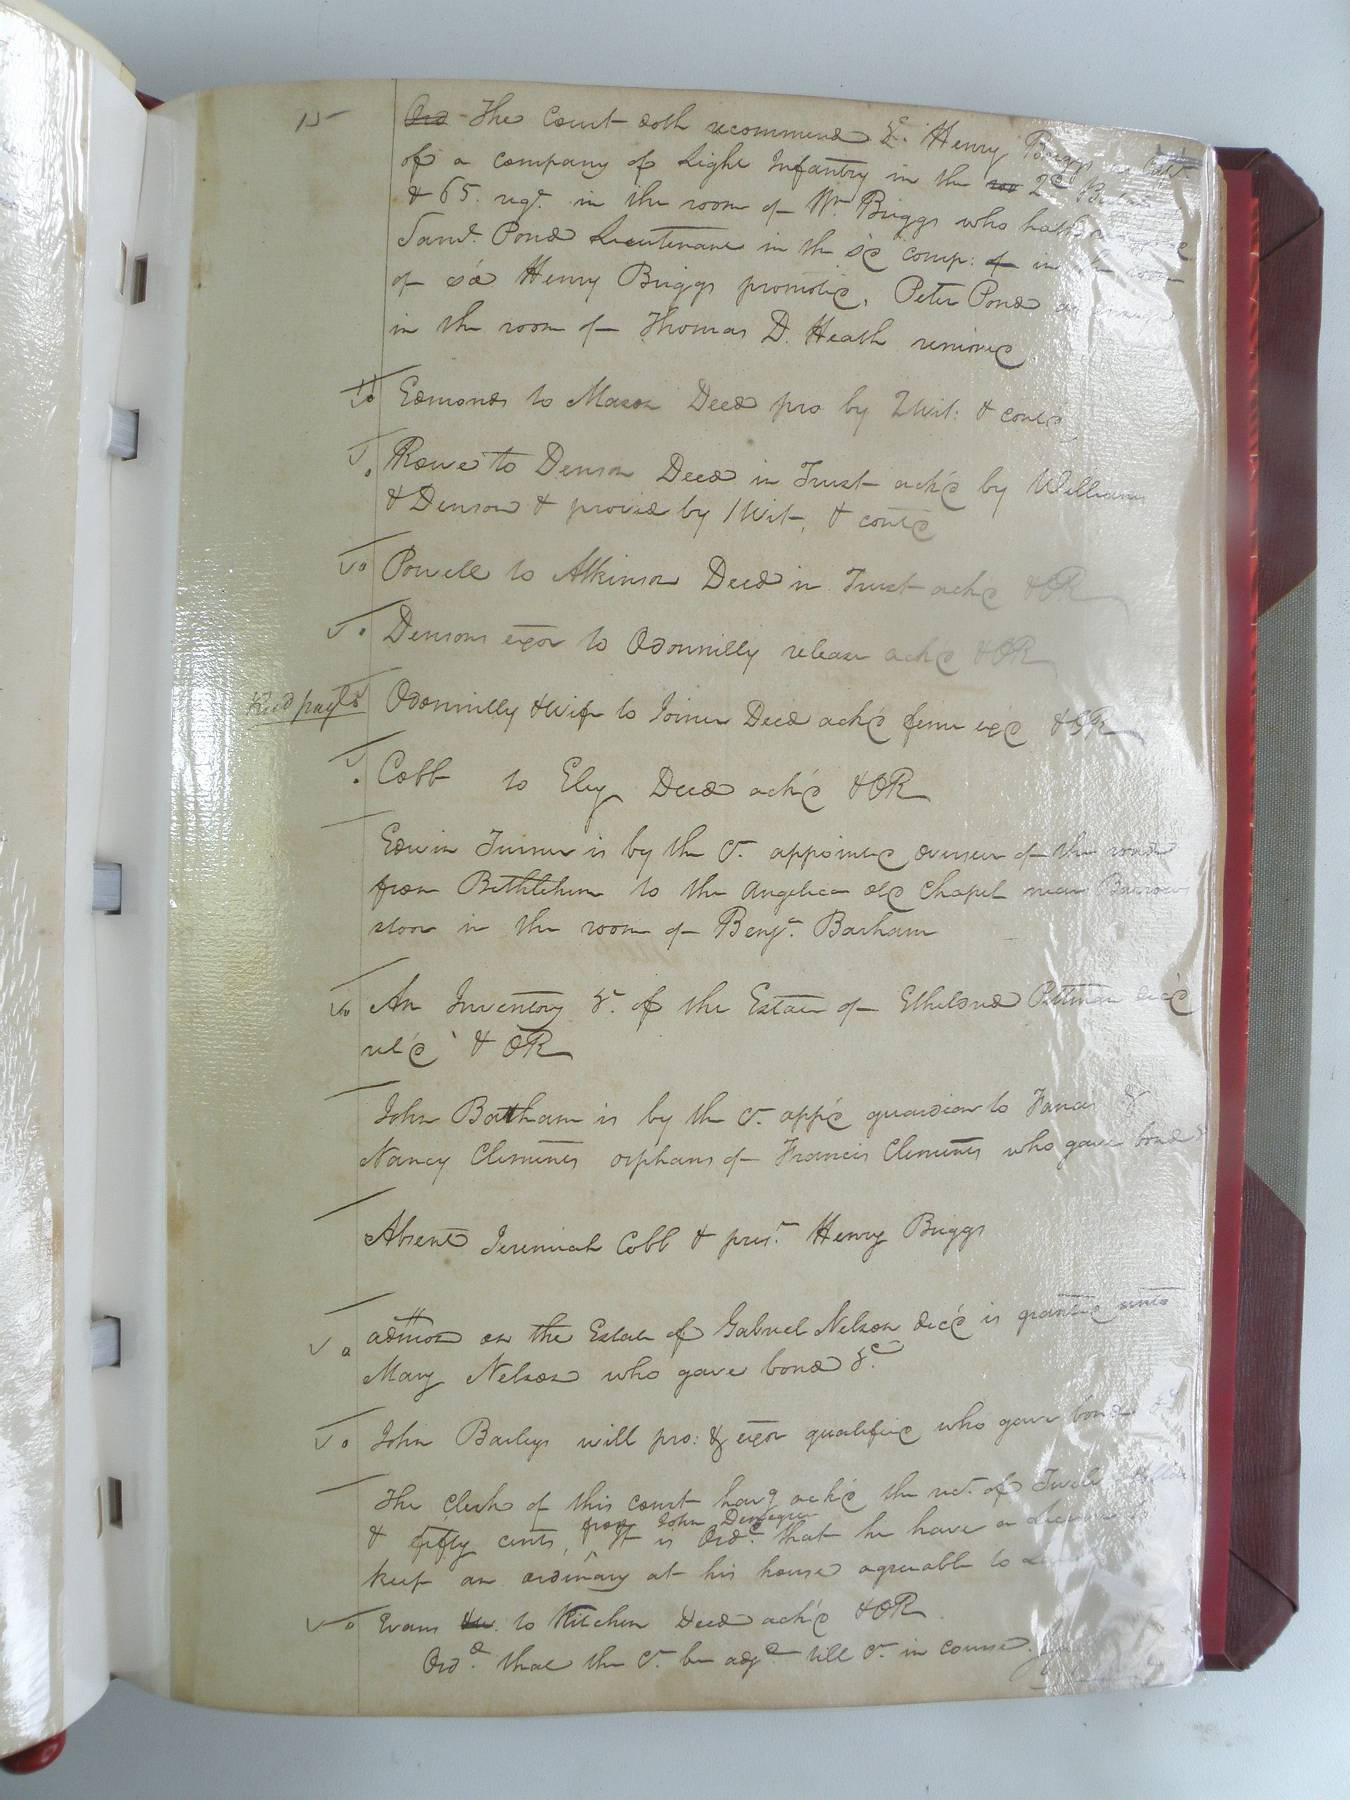 15
The Court doth recommend &c. Henry Briggs as Capt
of a company of Light Infantry in the 2d
& 65. regt. in the room of Wm Briggs who hath
Saml. Pond Lieutenant in the sd comp: in the room
of sd Henry Briggs promoted, Peter Pond as ensign
in the room of Thomas D. Heath removed
Edmonds to Mason Deed pro by 2 Wit: & contd
Rowe to Denson Deed in Trust ackd by Williams
& Denson & proved by 1 Wit, & contd
Powell to Atkinson Deed in Trust ackd & OR
Densons exor to Odonnilly release ackd & OR
Odonnilly & Wife to Joiner Deed ackd feme exd & OR
Cobb to Eley Deed ackd & OR
Edwin Turner is by the Ct. appointed overseer of the road
from Bethlehem to the Angelica old Chapel near Barrows
store in the room of Benjn. Barham
An Inventory &c. of the Estate of Etheldred Pittman decd
retd & OR
John Barham is by the Ct. appd guardian to &
Nancy Clements orphans of Francis Clements who gave bond
Absent Jeremiah Cobb & prest. Henry Briggs
admon on the Estate of Gabriel Nelson decd is granted unto
Mary Nelson who gave bond &c
John Baileys will pro: & exor qualified who gave bond &c
The Clerk of this court havg ackd the rect. of Twelve dollars
from John
& fifty cents, It is Ordd. that he have a License to
keep an ordinary at his house agreeable to Law
Evans to Kitchen Deed ackd & OR
Ordd. that the Ct. be adjd till Ct. in course.